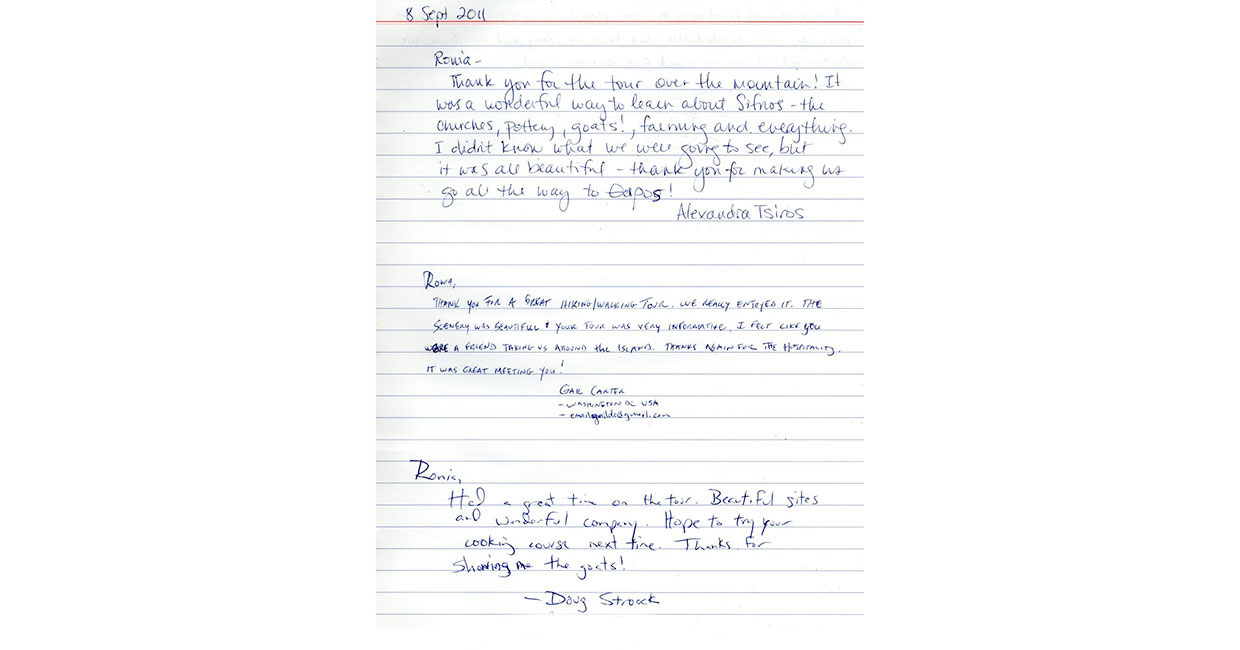 8 Sept 2011
Ronia -
Thank you for the tour over the mountain! It
was a wonderful way to learn about Sifnos - the
churches, pottery, goats!, farming and everything.
I didn't know what we were going to see, but
it was all beautiful - thank you for making us
go all the way to !
Alexandra Tsiros
Ronia,
THANK YOU FOR A GREAT HIKING/WALKING TOUR. WE REALLY ENJOYED IT. THE
SCENERY WAS BEAUTIFUL & YOUR TOUR WAS VERY INFORMATIVE. I FELT LIKE YOU
WERE A FRIEND TAKING US AROUND the ISLAND. THANKS AGAIN FOR THE HOSPITALITY.
IT WAS GREAT MEETING YOU!
GAIL CARTER
- WASHINGTON DC USA
Ronia,
Had a great time on the tour. Beautiful sites
and wonderful company. Hope to try your
cooking course next time. Thanks for
showing me the goats!
- Doug